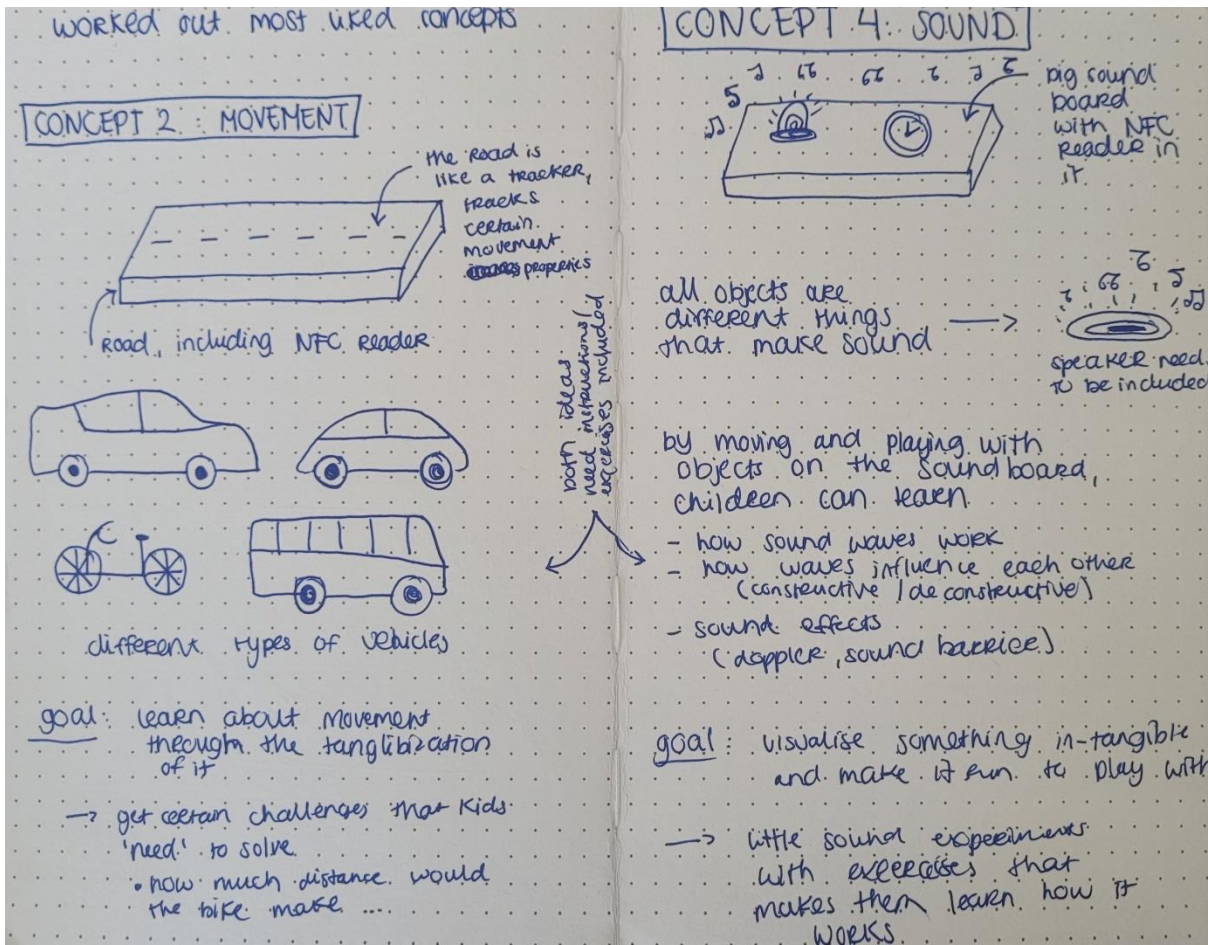 worked out most liked concepts
CONCEPT 2 : MOVEMENT
the road is
like a tracker,
tracks
certain
movement
properties
Road, including NFC Reader
different types of vehicles
goal: learn about movement
through the tanglibization
of it
→ get certain challenges that kids
'need' to solve
• how much distance would
the bike make ...
both ideas
need instructions/
exercises included
CONCEPT 4: SOUND
big sound
board
with NFC
Reader in
it
all objects are
different things
that make sound
speaker need
to be included
by moving and playing with
objects on the soundboard,
children can learn
- how sound waves work
- how waves influence each other
(constructive / deconstructive)
- sound effects
(doppler, sound barrier)
goal: visualise something in-tangible
and make it fun to play with
→ little sound experiments
with exercises that
makes them learn how it
works